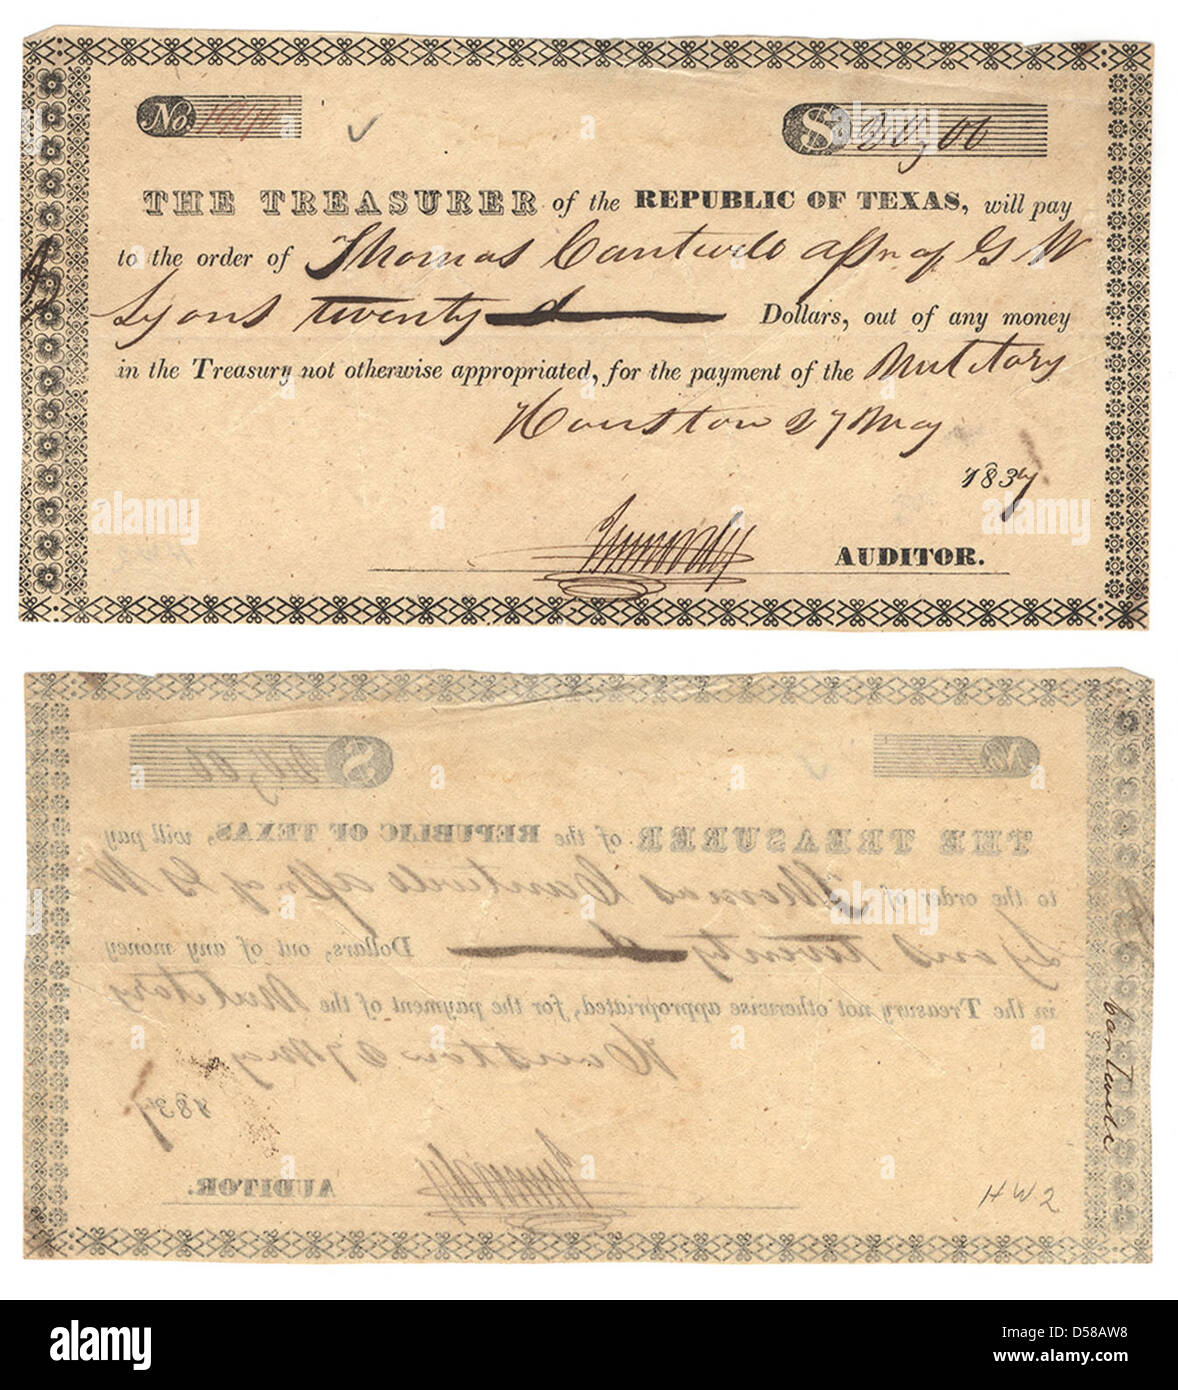 No. $ 20,00
THE TREASURER of the REPUBLIC OF TEXAS, will pay
to the order of Thomas Cantwell assn of G W
Lyons twenty Dollars, out of any money
in the Treasury not otherwise appropriated, for the payment of the Military
Houston 27 May
1837
AUDITOR.
Cantwell
HW2
alamy
Image ID: D58AW8
www.alamy.com